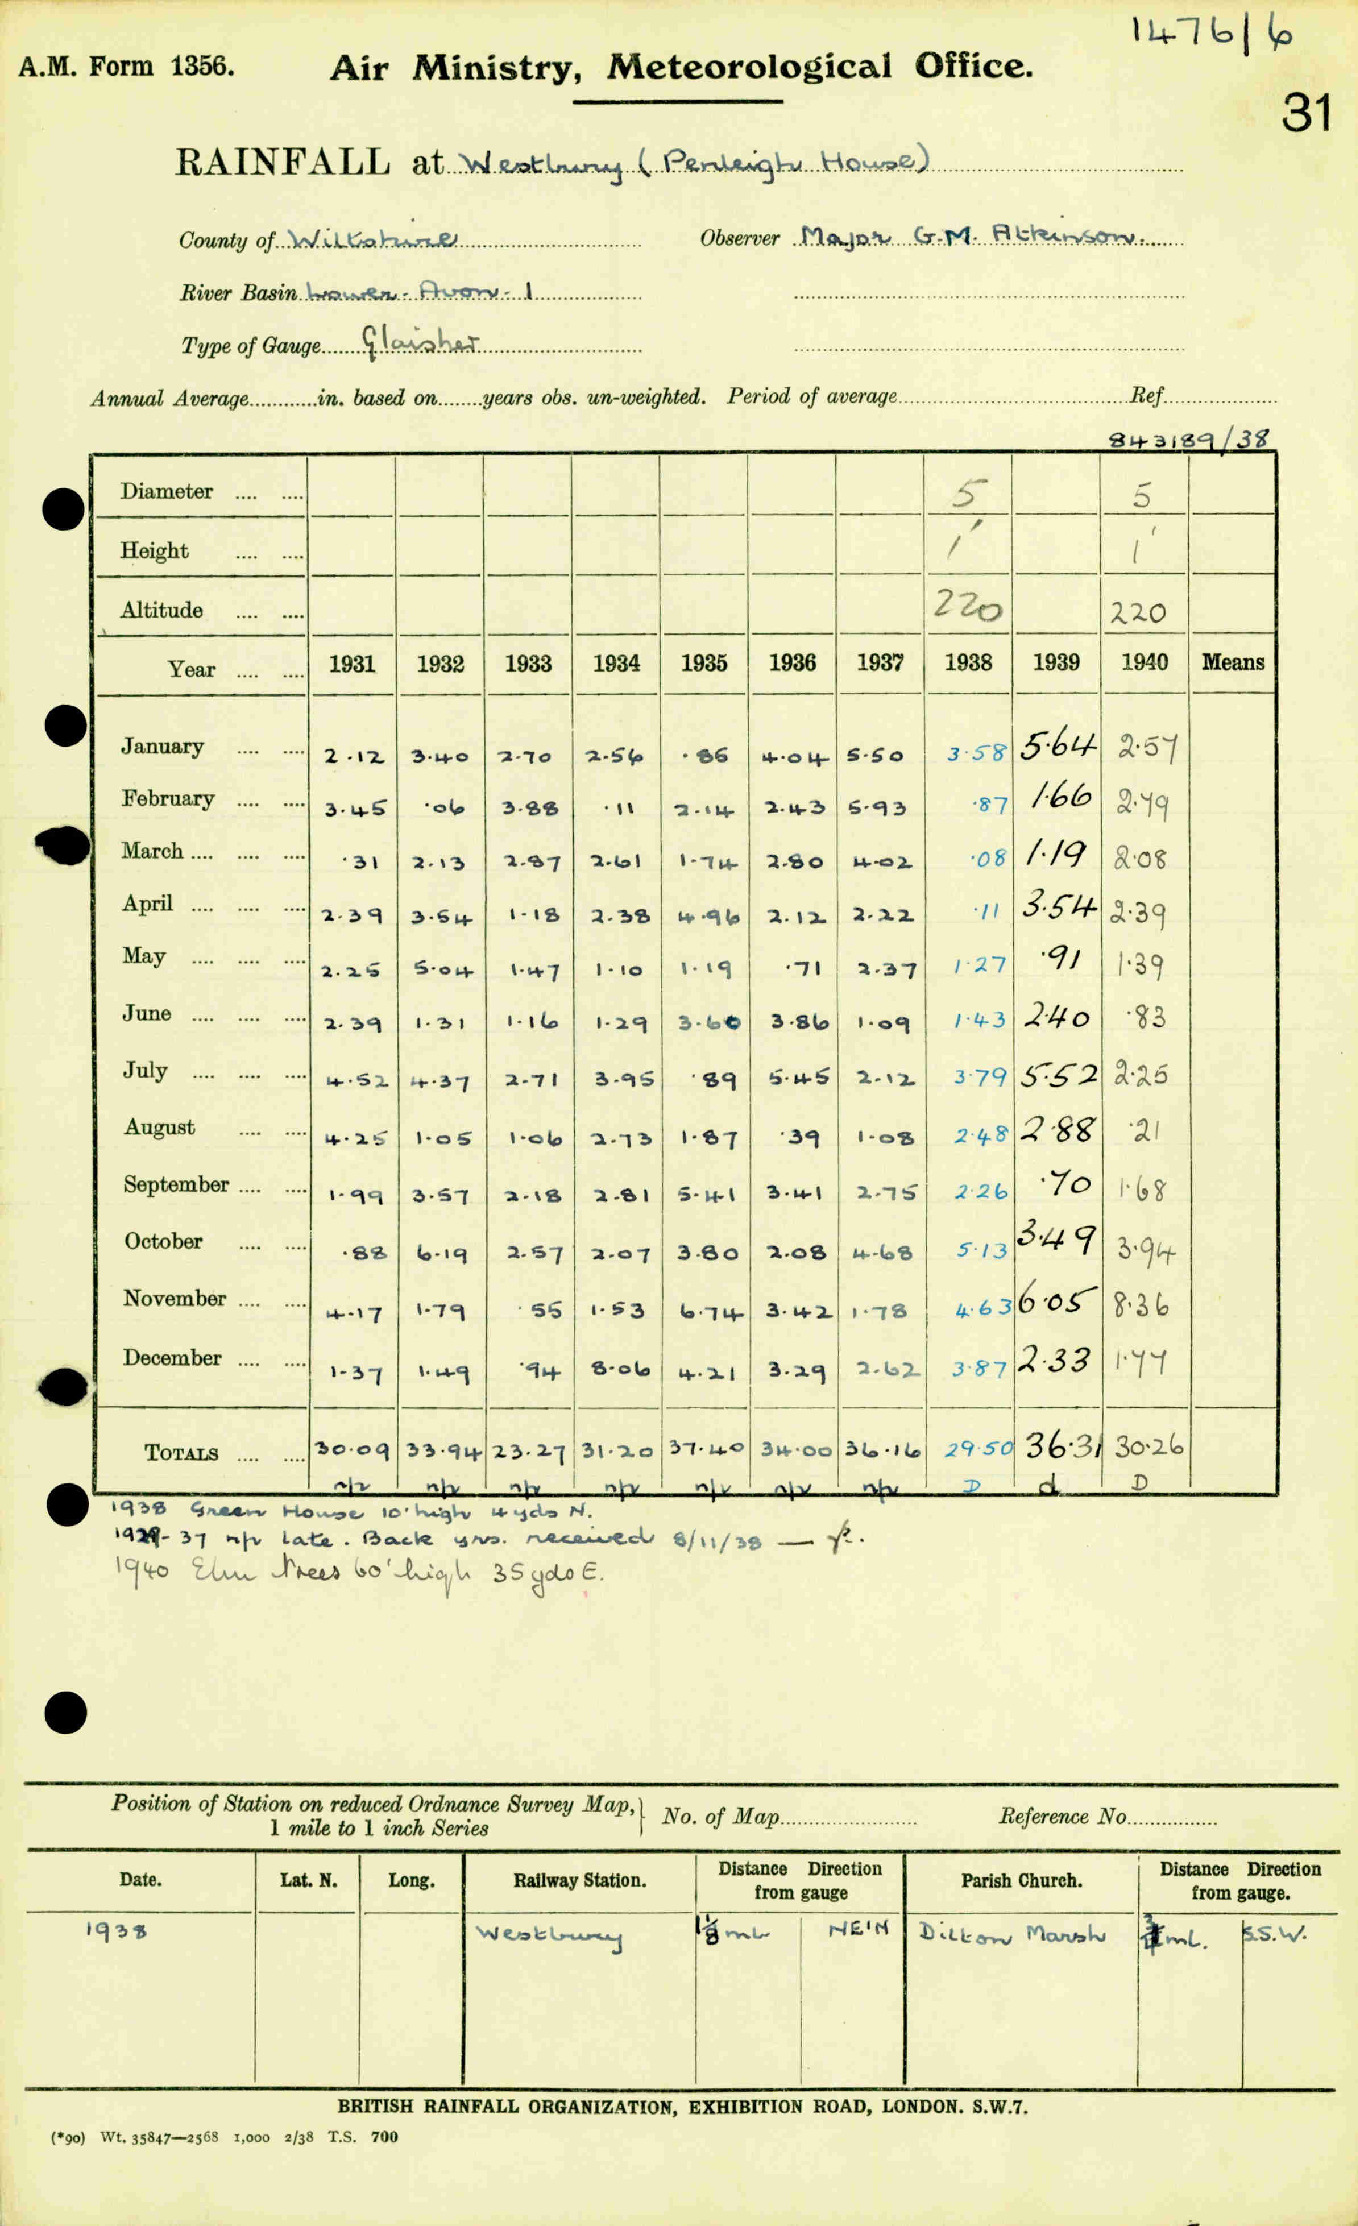 1476/6
A.M. Form 1356. Air Ministry, Meteorological Office.
31
RAINFALL at Westbury (Penleigh House)
County of Wiltshire Observer Major G.M. Atkinson.
River Basin Lower-Avon-1
Type of Gauge Glaisher
Annual Average............in. based on........years obs. un-weighted. Period of average........ Ref........
843189/38
Diameter .... .... 5 5
Height .... .... 1' 1'
Altitude .... .... 220 220
Year .... .... 1931 1932 1933 1934 1935 1936 1937 1938 1939 1940 Means
January .... .... 2.12 3.40 2.70 2.56 .85 4.04 5.50 3.58 5.64 2.57
February .... .... 3.45 .06 3.88 .11 2.14 2.43 5.93 .87 1.66 2.79
March .... .... .... .31 2.13 2.87 2.61 1.74 2.80 4.02 .08 1.19 2.08
April .... .... .... 2.39 3.54 1.18 2.38 4.96 2.12 2.22 .11 3.54 2.39
May .... .... .... 2.25 5.04 1.47 1.10 1.19 .71 2.37 1.27 .91 1.39
June .... .... .... 2.39 1.31 1.16 1.29 3.60 3.86 1.09 1.43 2.40 .83
July .... .... .... 4.52 4.37 2.71 3.95 .89 5.45 2.12 3.79 5.52 2.25
August .... .... 4.25 1.05 1.06 2.73 1.87 .39 1.08 2.48 2.88 .21
September .... .... 1.99 3.57 2.18 2.81 5.41 3.41 2.75 2.26 .70 1.68
October .... .... .88 6.19 2.57 2.07 3.80 2.08 4.68 5.13 3.49 3.94
November .... .... 4.17 1.79 .55 1.53 6.74 3.42 1.78 4.63 6.05 8.36
December .... .... 1.37 1.49 .94 8.06 4.21 3.29 2.62 3.87 2.33 1.77
TOTALS .... .... 30.09 33.94 23.27 31.20 37.40 34.00 36.16 29.50 36.31 30.26
n/p n/p n/p n/p n/p n/p n/p D d D
1938 Green House 10' high 4 yds N.
1929-37 n/p late. Back yrs. received 8/11/38 —
1940 Elm Trees 60' high 35 yds E.
Position of Station on reduced Ordnance Survey Map,} No. of Map........ Reference No........
1 mile to 1 inch Series
Date. Lat. N. Long. Railway Station. Distance Direction from gauge Parish Church. Distance Direction from gauge.
1938 Westbury 1⅛ mL NE'N Dilton Marsh ¾ mL. S.S.W.
BRITISH RAINFALL ORGANIZATION, EXHIBITION ROAD, LONDON. S.W.7.
(*90) Wt. 35847—2568 1,000 2/38 T.S. 700